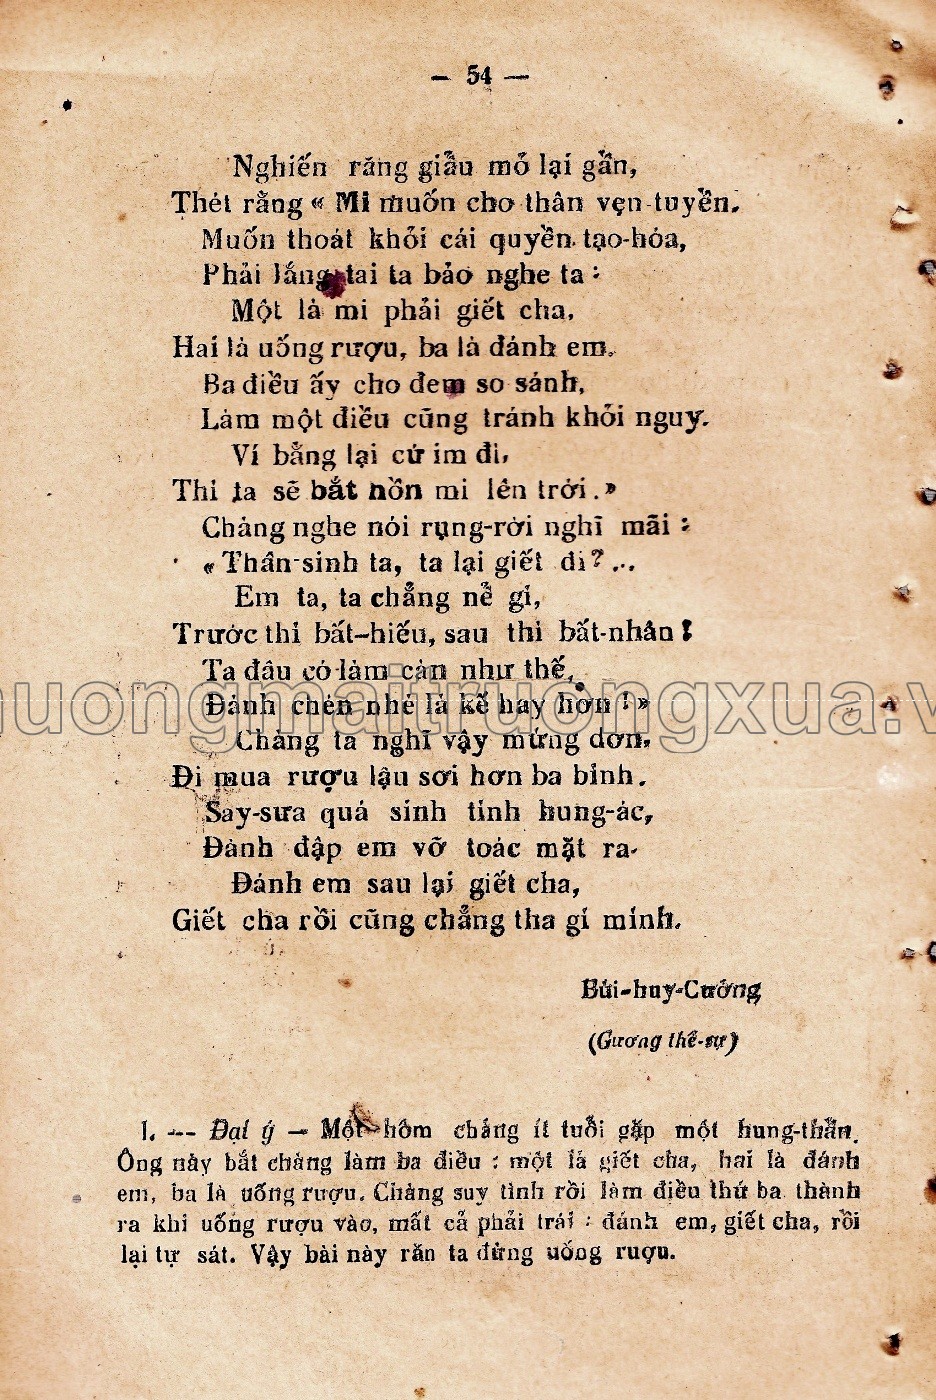 — 54 —
Nghiến răng giẫu mỏ lại gần,
Thét rằng « Mi muốn cho thân vẹn-tuyền.
Muốn thoát khỏi cái quyền tạo-hóa,
Phải lắng tai ta bảo nghe ta :
Một là mi phải giết cha,
Hai là uống rượu, ba là đánh em.
Ba điều ấy cho đem so sánh,
Làm một điều cũng tránh khỏi nguy.
Ví bằng lại cứ im đi,
Thì ta sẽ bắt hồn mi lên trời. »
Chàng nghe nói rụng-rời nghĩ mãi :
« Thân-sinh ta, ta lại giết đi ?...
Em ta, ta chẳng nể gì,
Trước thì bất-hiếu, sau thì bất-nhân !
Ta đâu có làm càn như thế,
Đánh chén nhè là kế hay hơn ! »
Chàng ta nghĩ vậy mừng dơn,
Đi mua rượu lậu sơi hơn ba bình.
Say-sưa quá sinh tình hung-ác,
Đánh đập em vỡ toác mặt ra.
Đánh em sau lại giết cha,
Giết cha rồi cũng chẳng tha gì mình.
Bùi-huy-Cường
(Gương thế-sự)
I. — Đại ý — Một hôm chàng ít tuổi gặp một hung-thần.
Ông này bắt chàng làm ba điều : một là giết cha, hai là đánh
em, ba là uống rượu. Chàng suy tình rồi làm điều thứ ba thành
ra khi uống rượu vào, mất cả phải trái : đánh em, giết cha, rồi
lại tự sát. Vậy bài này răn ta đừng uống rượu.
huongmaitruongxua.v